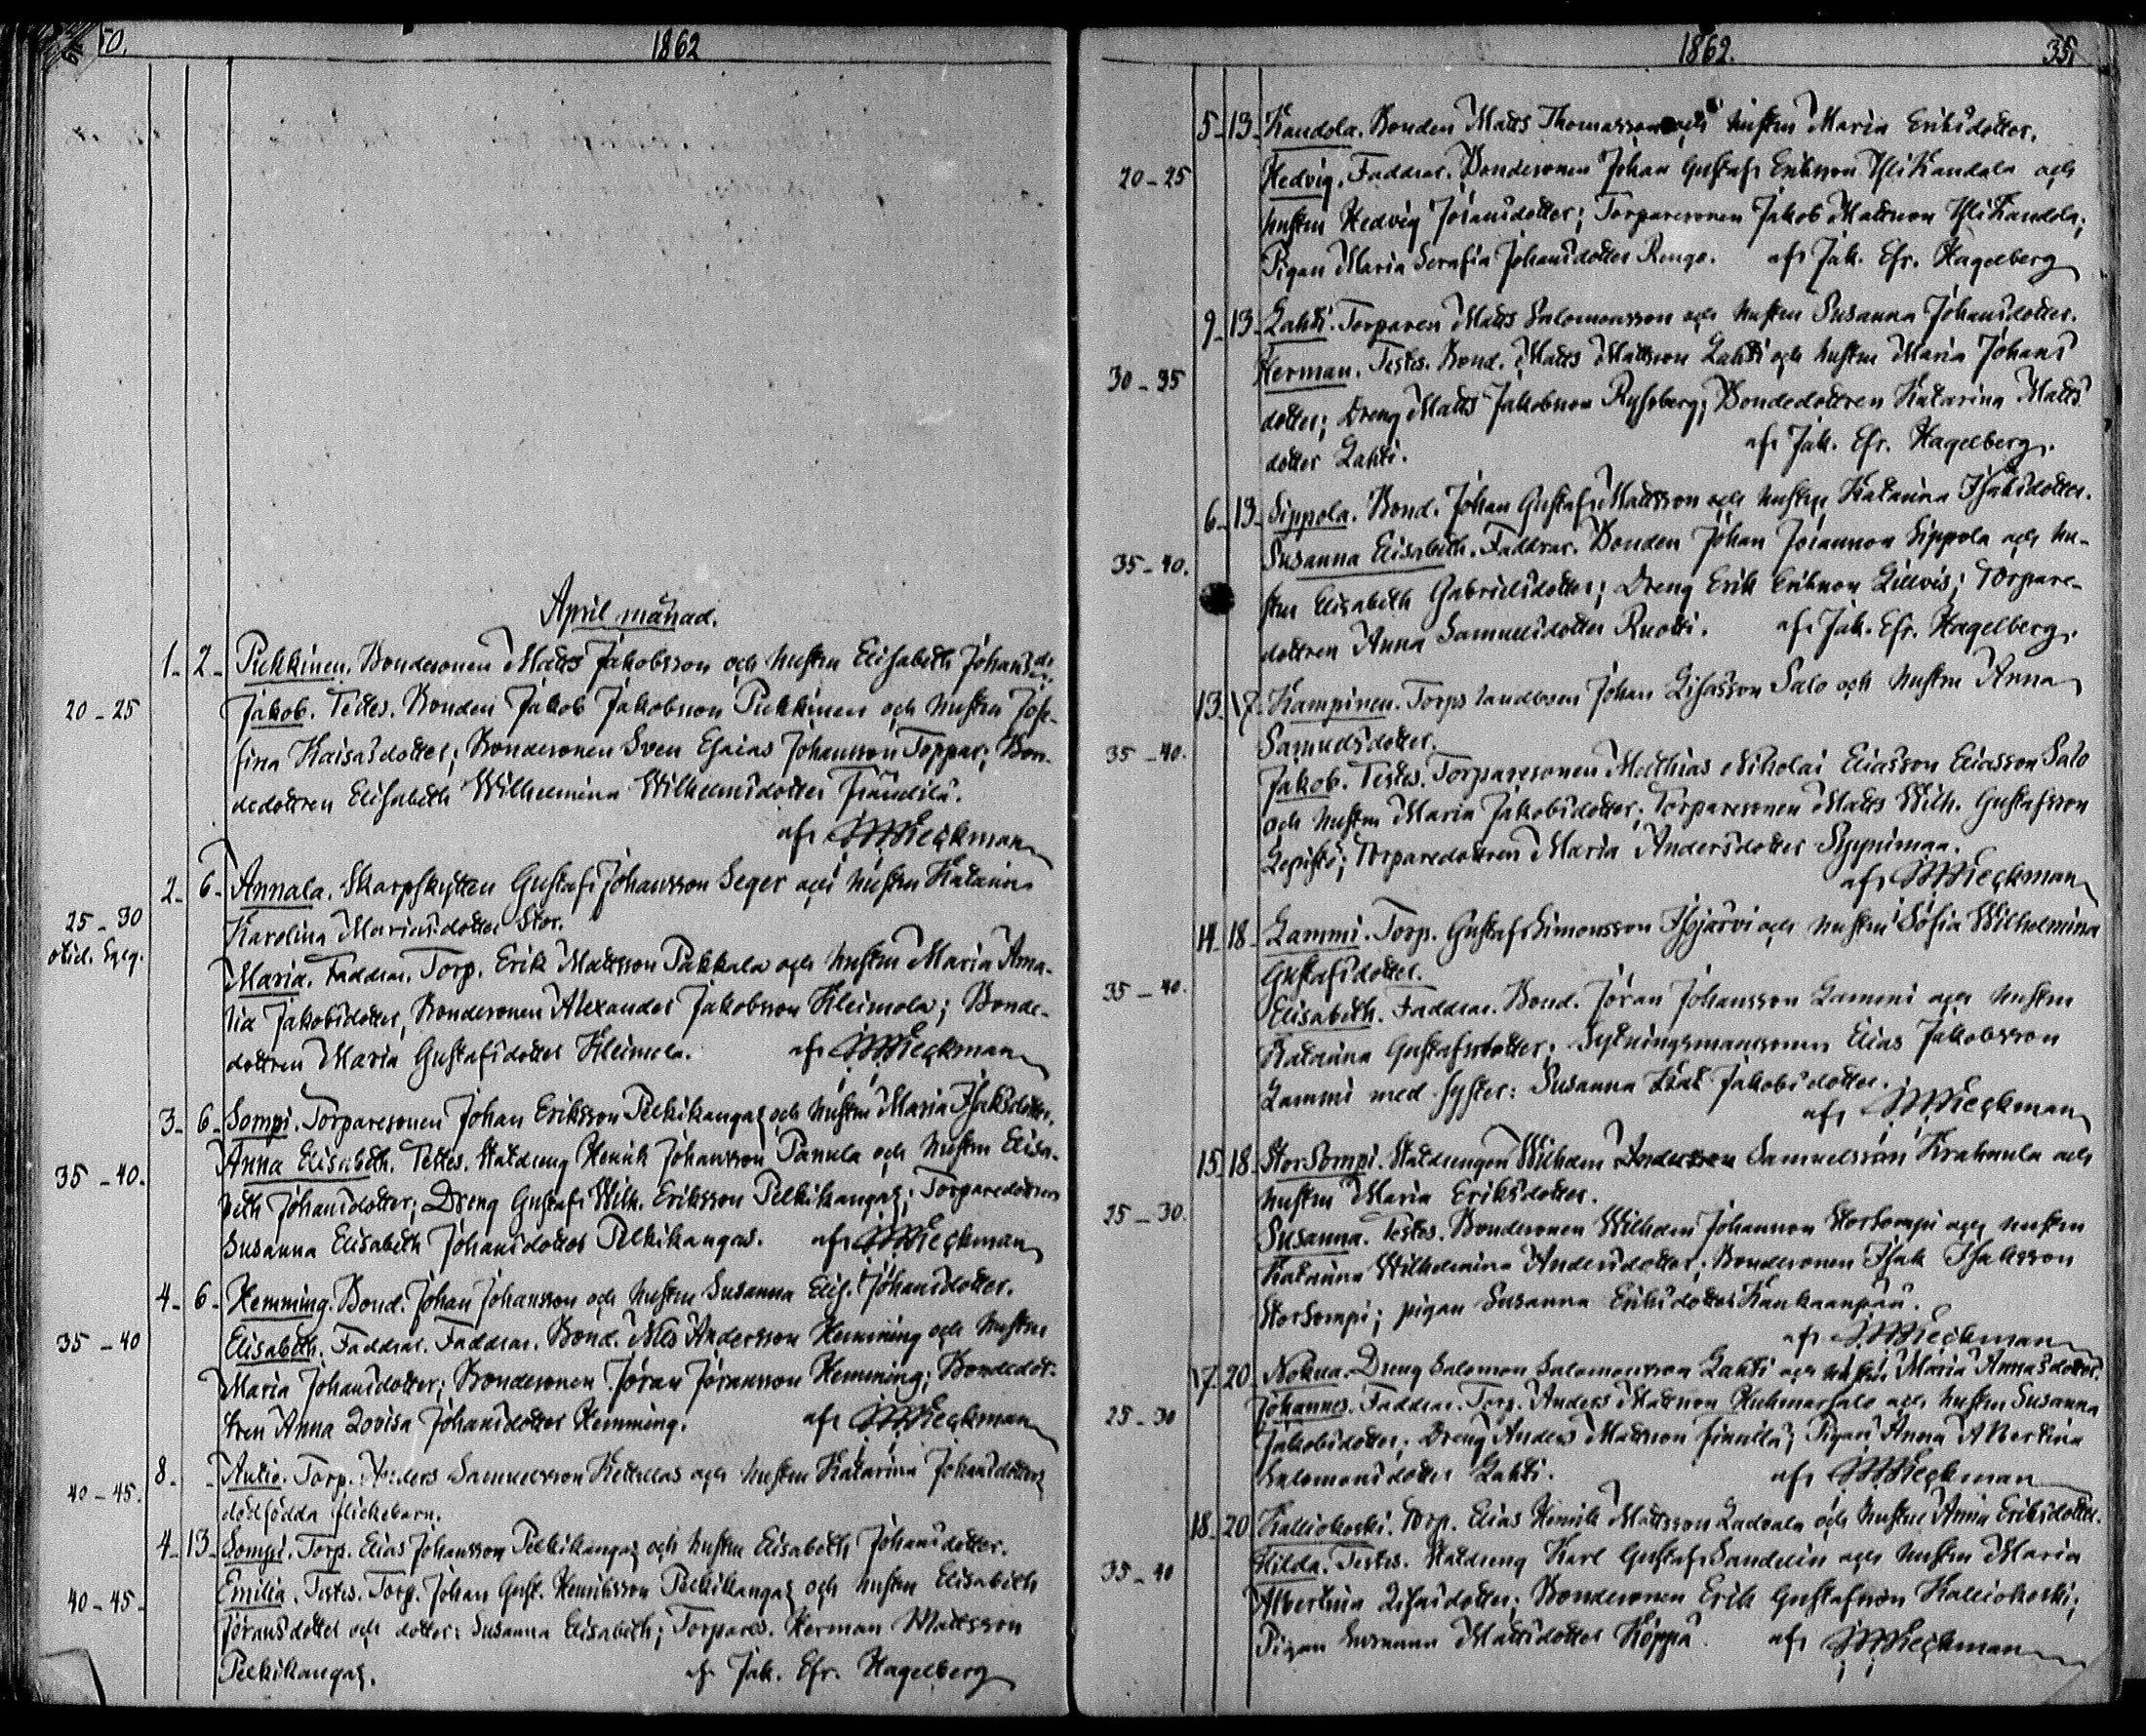 50.
1862
April månad.
1. 2. Pickkinen. Bondesonen Matts Jakobsson och hustru Elisabeth Johansdr
20-25 Jakob. Testes. Bonden Jakob Jakobsson Pickkinen och hustru Jose-
fina Kaisasdotter; Bondesonen Sven Esaias Johansson Toppar; Bon-
dedottren Elisabeth Wilhelmina Wilhelmsdotter Frändilä.
af Wieckman
2. 6. Annala. Skarpskytten Gustaf Johansson Seger och hustru Katarina
25-30 Karolina Mariasdotter Stor.
Maria. Faddrar. Torp. Erik Mattsson Pakkala och hustru Maria Ama-
lia Jakobsdotter, Bondesonen Alexander Jakobsson Heimola; Bonde-
dottren Maria Gustafsdotter Heimola. af Wieckman
3. 6. Sompi. Torparesonen Johan Eriksson Pelkikangas och hustru Maria Isaksdotter.
35-40. Anna Elisabeth. Testes. Statdreng Henrik Johansson Panula och hustru Elisa-
beth Johansdotter; Dreng Gustaf Wilh. Eriksson Pelkikangas; Torparedottren
Susanna Elisabeth Johansdotter Pelkikangas. af Wieckman
4. 6. Hemming. Bond. Johan Johansson och hustru Susanna Elis. Johansdotter.
35-40 Elisabeth. Faddrar. Faddrar. Bond. Nils Andersson Hemming och hustru
Maria Johansdotter; Bondesonen Jöran Jöransson Hemming; Bondedot-
tren Anna Lovisa Johansdotter Hemming. af Wieckman
8. - Autio. Torp. Anders Samuelsson Kettellas och hustru Katarina Johansdotters
40-45. dödfödda flickebarn.
4. 13. Sompi. Torp. Elias Johansson Pelkikangas och hustru Elisabeth Johansdotter.
40-45. Emilia. Testes. Torp. Johan Gust. Henriksson Pelkikangas och hustru Elisabeth
Jöransdotter och dotter: Susanna Elisabeth; Torpares. Herman Mattsson
Pelkikangas. af Jak. Efr. Hagelberg
1862.
35.
5. 13. Kandola. Bonden Matts Thomasson och hustru Maria Eriksdotter.
20-25 Hedvig. Faddrar. Bondesonen Johan Gustaf Eriksson Yli Kandola och
hustru Hedvig Jöransdotter; Torparesonen Jakob Mattsson Yli Kandola;
Pigan Maria Serafia Johansdotter Rengo. af Jak. Efr. Hagelberg
9. 13. Lahti. Torparen Matts Salomonsson och hustru Susanna Johansdotter.
30-35 Herman. Testes. Bond. Matts Mattsson Lahti och hustru Maria Johans
dotter; Dreng Matts Jakobsson Ryssberg; Bondedottren Katarina Matts
dotter Lahti. af Jak. Efr. Hagelberg.
6. 13. Sippola. Bond. Johan Gustaf Mattsson och hustru Katarina Isaksdotter.
35-40. Susanna Elisabeth. Faddrar. Bonden Johan Jöransson Sippola och hu-
stru Elisabeth Gabrielsdotter; Dreng Erik Eriksson Lillvis; Torpare-
dottren Anna Samuelsdotter Ruotti. af Jak. Efr. Hagelberg.
13. 17. Kampinen. Torps landbon Johan Lisasson Salo och hustru Anna
35-40. Samuelsdotter.
Jakob. Testes. Torparesonen Matthias Nikolai Eliasson Eliasson Salo
och hustru Maria Jakobsdotter; Torparesonen Matts Wilh. Gustafsson
Lepistö; Torparedottren Maria Andersdotter
af Wieckman
14. 18. Lammi. Torp. Gustaf Simonsson Isojärvi och hustru Sofia Wilhelmina
35-40. Gustafsdotter.
Elisabeth. Faddrar. Bond. Jöran Johansson Lammi och hustru
Katarina Gustafsdotter; Sytningsmanssonen Elias Jakobsson
Lammi med syster: Susanna Kat Jakobsdotter.
af Wieckman
15. 18. StorSompi. Statdrengen Wilhelm Samuelsson Krahnula och
25-30. hustru Maria Eriksdotter.
Susanna. Testes. Bondesonen Wilhelm Johansson Storsompi och hustru
Katarina Wilhelmina Andersdotter; Bondesonen Isak Isaksson
Storsompi; pigan Susanna Eriksdotter Kankaanpää.
af Wieckman
17. 20. Nokua. Dreng Salomon Salomonsson Lahti och hustru Maria Annasdotter.
25-30 Johannes. Faddrar. Torp. Anders Mattsson Huhmarsalo och hustru Susanna
Jakobsdotter; Dreng Anders Mattsson Finnilä; Pigan Anna Albertina
Salomonsdotter Lahti. af Wieckman
18. 20 Kalliokoski. Torp. Elias Henrik Mattsson Ladvala och hustru Anna Eriksdotter.
35-40 Hilda. Testes. Statdreng Karl Gustaf Sandelin och hustru Maria
Albertina Lisasdotter; Bondesonen Erik Gustafsson Kalliokoski;
Pigan Susanna Mattsdotter Köppä. af Wieckman